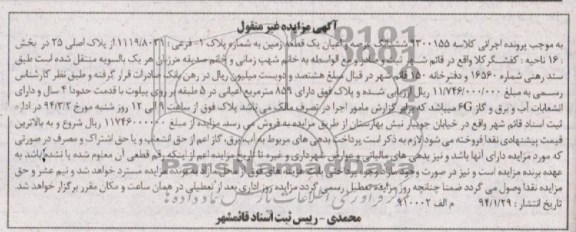 آگهی مزایده غیر منقول
به موجب پرونده اجرائی کلاسه ۹۳۰۰۱۵۵ ششدانگ عرصه و اعیان یک قطعه زمین به شماره پلاک ۱۰ فرعی از ۱۱۱۹/۸۰۳۱ از پلاک اصلی ۲۵ در بخش
۱۶ ناحیه کفشگرکلا واقع در قائم شهر مع الواسطه به خانم شهب زمانی و خانم صدیقه مرزبان هر یک بالسویه منتقل شده است طبق
سند رهنی شماره ۱۶۵۶۰ دفترخانه ۱۵۰ قائم شهر در قبال مبلغ هشتصد و دویست میلیون ریال در رهن بانک صادرات قرار گرفته و طبق نظر کارشناس
رسمی به مبلغ ۱۱/۷۴۶/۰۰۰/۰۰۰ ریال ارزیابی شده و پلاک فوق دارای ۸۵۹ مترمربع اعیانی در ۵ طبقه بر روی پیلوت با قدمت حدودا ۴ سال و دارای
انشعابات آب و برق و گاز G۶ میباشد که برابر گزارش مامور اجرا در تصرف مالک می باشد پلاک فوق از ساعت ۹ الی ۱۲ روز شنبه مورخ ۹۴/۳/۲ در اداره
ثبت اسناد قائم شهر واقع در خیابان جویبار نبش بهارستان از طریق مزایده به فروش می رسد. مزایده از مبلغ ۱۱۷۴۶۰۰۰۰۰۰ ریال شروع و به بالاترین
قیمت پیشنهادی نقدا فروخته می شود لازم به ذکر است پرداخت بدهی های مربوط به آب، برق، گاز اعم از حق انشعاب و یا حق اشتراک و مصرف در صورتی
که مورد مزایده دارای آنها باشد و نیز بدهی های مالیاتی و عوارض شهرداری و غیره تا تاریخ مزایده اعم از اینکه رقم قطعی آن معلوم شده یا نشده باشد به
عهده برنده مزایده است و نیز در صورت وجود مازاد وجوه پرداختی بابت هزینه های فوق از محل مازاد به برنده مزایده مسترد خواهد شد و نیم عشر و حق
مزایده نقدا وصول می گردد ضمنا چنانچه روز مزایده تعطیل رسمی گردد مزایده روز اداری بعد از تعطیلی در همان ساعت و مکان مقرر برگزار خواهد شد.
تاریخ انتشار: ۹۴/۱/۲۹ م الف ۹۱۰۰۰۲
محمدی - رییس ثبت اسناد قائمشهر
ParsNamadData